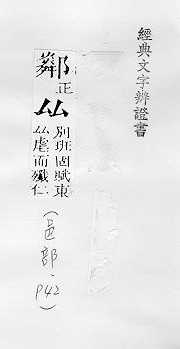 經典文字辨證書
鄰正
厸別班固賦東
厸虐而殲仁
(邑部.P42)